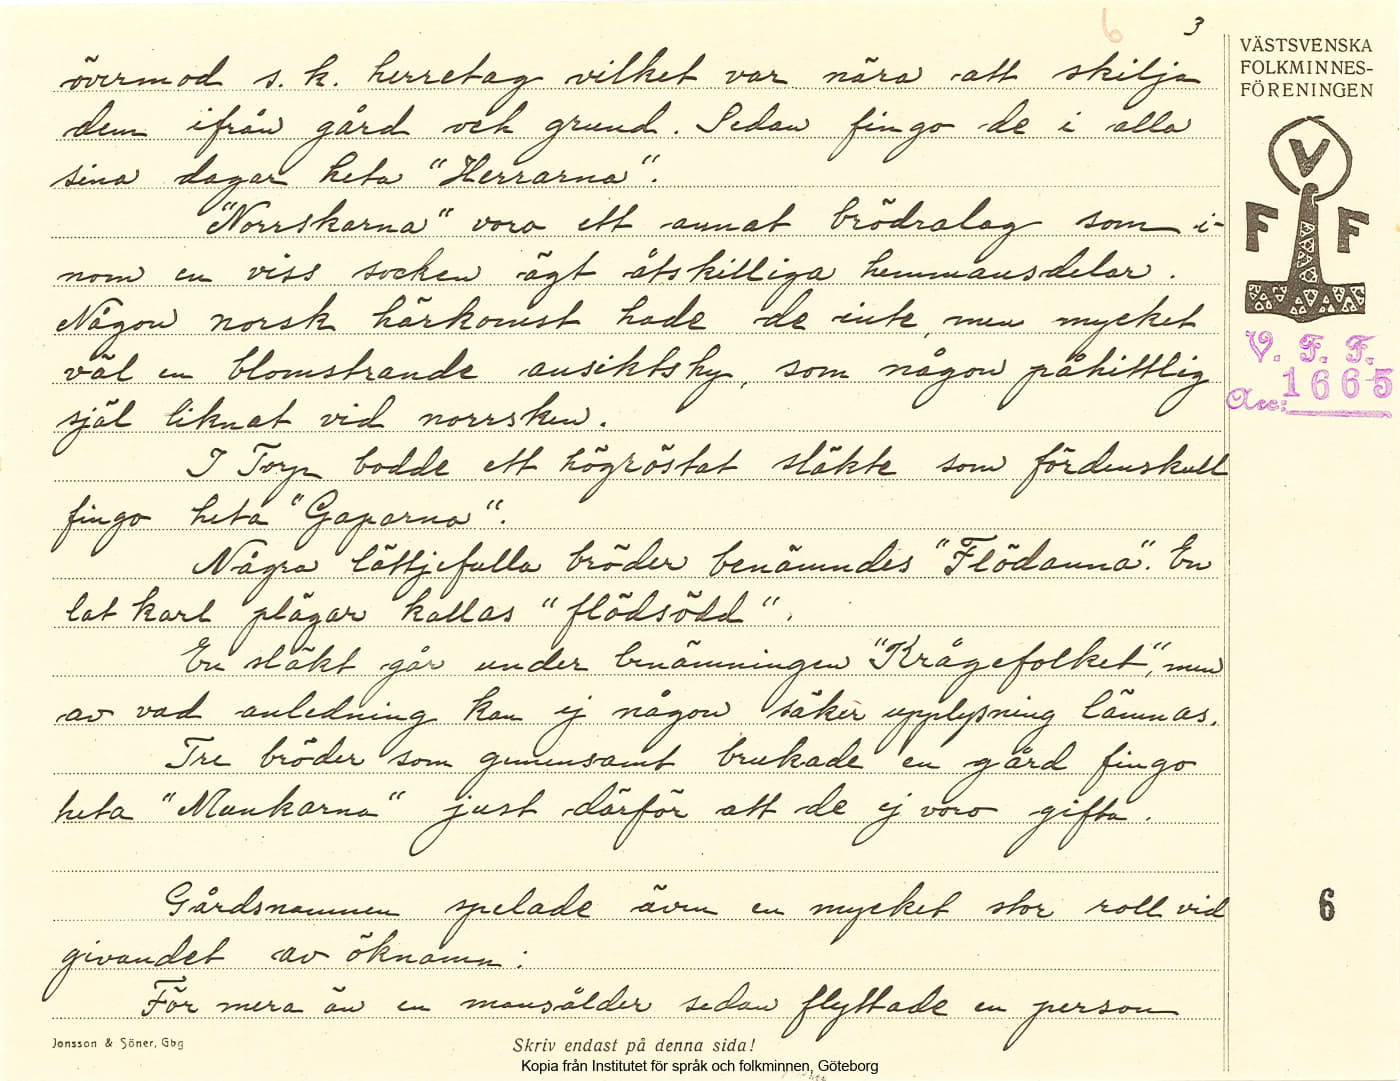 6
3
övermod s. k. herretag vilket var nära att skilja
dem ifrån gård och grund. Sedan fingo de i alla
sina dagar heta "Herrarna".
"Norrskarna" voro ett annat brödralag som i-
nom en viss socken ägt åtskilliga hemmansdelar.
Någon norsk härkomst hade de inte, men mycket
väl en blomstrande ansiktshy, som någon påhittlig
själ liknat vid norrsken.
I Torp bodde ett högröstat släkte som fördenskull
fingo heta "Gaparna".
Några lättjefulla bröder benämndes "Flödanna". En
lat karl plägar kallas "flödsödd".
En släkt går under benämningen "Krågefolket", men
av vad anledning kan ej någon säker upplysning lämnas.
Tre bröder som gemensamt brukade en gård fingo
heta "Munkarna" just därför att de ej voro gifta.
Gårdsnamnen spelade även en mycket stor roll vid
givandet av öknamn:
För mera än en mansålder sedan flyttade en person
VÄSTSVENSKA
FOLKMINNES-
FÖRENINGEN
V
F F
V. F. F.
Acc: 1665
6
Jonsson & Söner, Gbg
Skriv endast på denna sida!
Kopia från Institutet för språk och folkminnen, Göteborg